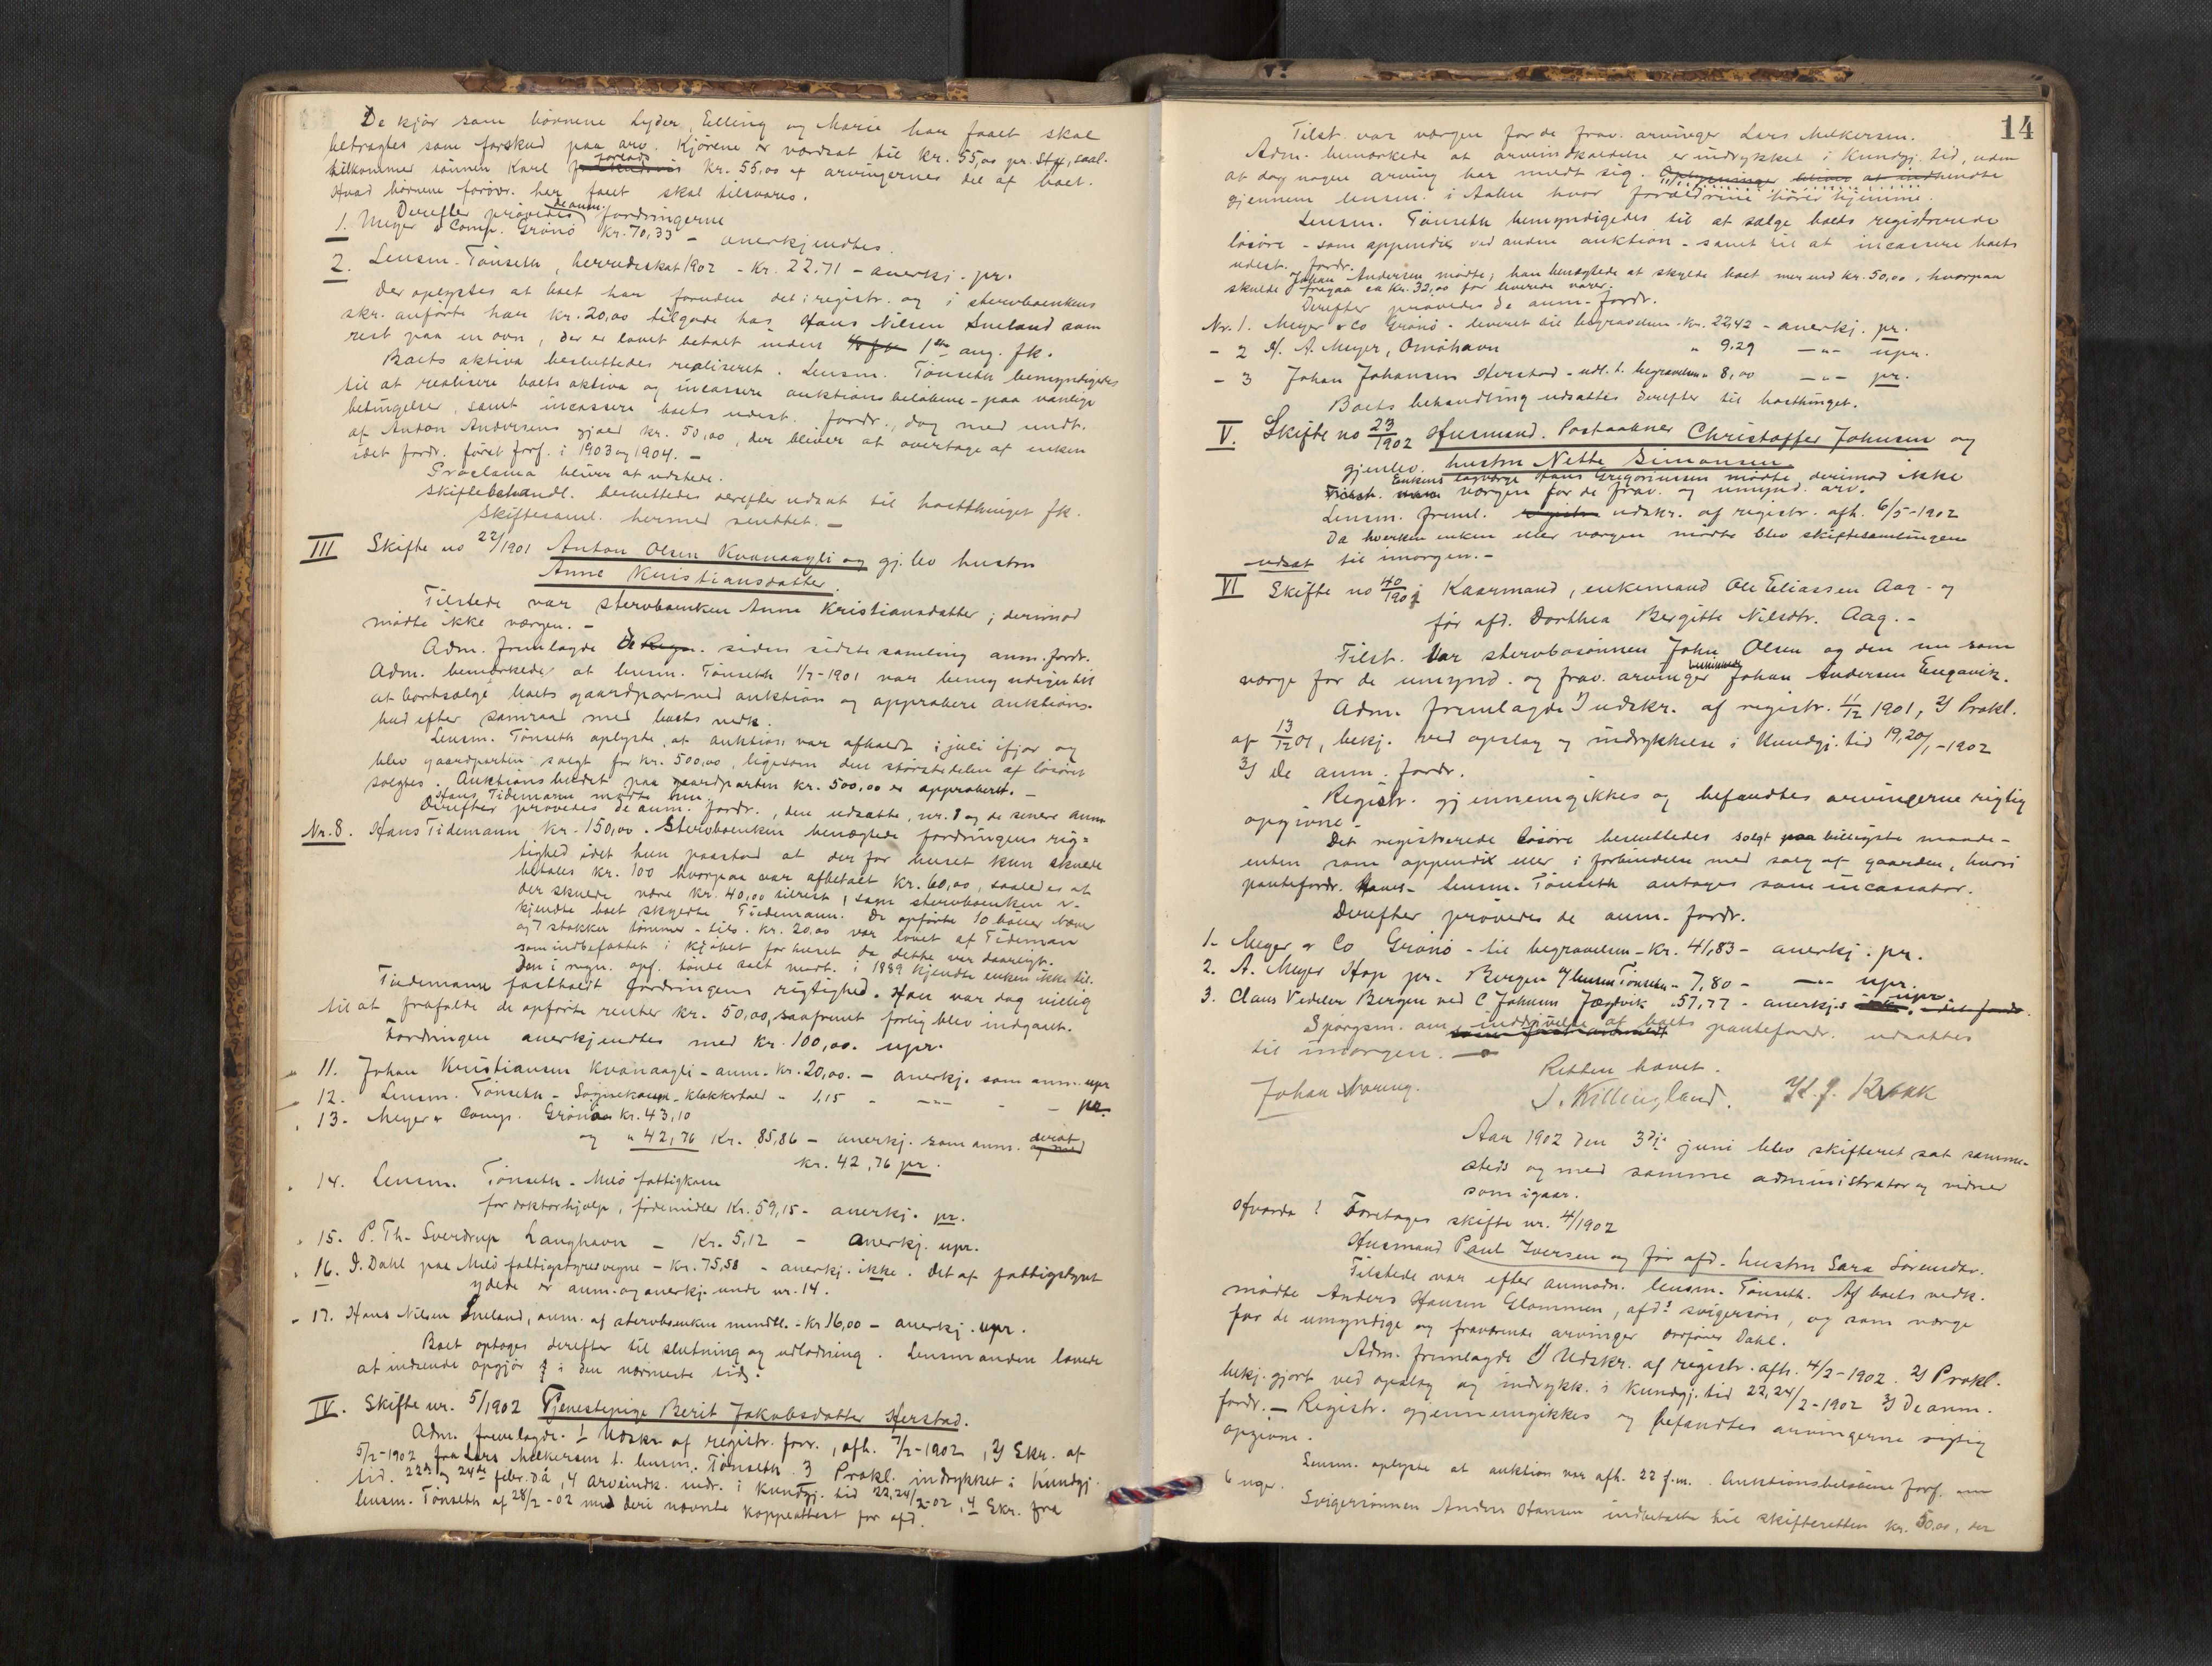 De kjör som börnene Lyder, Elling og Marie har faaet skal
betragtes som forskud paa arv. Kjörene er værdsat til kr. 55,00 pr. stk, saal.
tilkommer sönnen Karl forlods kr. 55,00 af arvingernes del af boet.
Hvad börnene forövr. her faaet skal tilsvares.
Derefter prövedes de anm. fordringerne
1. Meyer & Comp. Grönö kr. 70,33 - anerkjendtes.
2. Lensm. Tönseth, herredsskat 1902 - kr. 22.71 - anerkj. pr.
Der oplystes at boet har foruden det i registr. og i stervboenkens
skr. anförte har kr. 20,00 tilgode hos Hans Nilsen Sneland som
rest paa en ovn, der er lovet betalt inden 1ste aug. fk.
Boets aktiva besluttedes realiseret. Lensm. Tönseth bemyndigedes
til at realisere boets aktiva og incassere auktionsbelöbene - paa vanlige
betingelser, samt incassere boets udest. fordr., dog med undt.
af Anton Andersens gjæld kr. 50,00, der bliver at overtage af enken
idet fordr. först forf. i 1903 og 1904. -
Proclama bliver at udstede.
Skiftebehandl. besluttedes derefter udsat til höstthinget fk.
Skiftesaml. hermed sluttet. -
III Skifte no 22/1901 Anton Olsen Kvanaagli og gj. lev hustru
Anne Kristiansdatter.
Tilstede var stervboenken Anne Kristiansdatter; derimod
mödte ikke værgen. -
Adm. fremlagde de siden sidste samling anm. fordr.
Adm. bemærkede at lensm. Tönseth 1/7-1901 var bemyndiget til
at bortsælge boets gaardpart ved auktion og approbere auktions-
bud efter samraad med boets vedk.
Lensm. Tönseth oplyste, at auktion var afholdt i juli ifjor og
blev gaardparten solgt for kr. 500,00, ligesom den störstedelen af lösöret
solgtes. Auktionsbudet paa gaardparten kr. 500,00 er approberet. -
Hans Tidemann mödte nu.
Derefter prövedes de anm. fordr., den udsatte, nr. 8 og de senere anm
Nr. 8. Hans Tidemann kr. 150,00. Stervboenken benægtede fordringens rig=
tighed idet hun paastod at der for huset kun skulde
betales kr. 100 hvorpaa var afbetalt kr. 60,00, saaledes at
der skulde være kr. 40,00 tilrest, som stervboenken er-
kjendte boet skyldte Tiedemann. De opförte 10 böller Næver
og 7 stokker tömmer - tils. kr. 20,00 var lovet af Tideman
som indbefattet i kjöbet for huset da dette var daarligt.
Den i regn. opf. tönde salt modt. i 1889 kjendte enken ikke til.
Tiedemann fastholdt fordringens rigtighed. Han var dog villig
til at frafalde de opförte renter kr. 50,00, saafremt forlig blev indgaaet.
Fordringen anerkjendtes med kr. 100,00. upr.
11. Johan Kristiansen Kvanaagli - anm. kr. 20,00. - anerkj. som anm. upr
12. Lensm. Tönseth - Sognekald- Klokkertold - 1,15 - -"- - - pr.
13. Meyer & Comp. Grönöa kr. 43,10
og " 42,76 Kr. 85,86 - anerkj. som anm. deraf
kr. 42,76 pr.
14. Lensm. Tönseth - Melö fattigkasse
for doktorhjælp, födemidler Kr. 59,15 - anerkj. pr.
15. P. Th. Sverdrup Langhavn - Kr. 5,12 - anerkj. upr.
16. I. Dahl paa Melö fattigstyres vegne - kr. 75,58 - anerkj. ikke. Det af fattigstyret
ydede er anm. og anerkj. under nr. 14.
17. Hans Nilsen Sneland, anm. af stervboenken mundtl. - kr 16,00 - anerkj. upr.
Boet optages derefter til slutning og udlodning. Lensmanden lovede
at indsende opgjör i den nærmeste tid.
IV. Skifte nr. 5/1902 Tjenestepige Berit Jakobsdatter Herstad.
Adm. fremlagde. 1 Udskr. af registr. forr., afh. 7/2-1902, 2) Skr. af
5/2-1902 fra Lars Melkersen t. lensm. Tönseth. 3 Prokl. indrykket i Kundgj.
tid. 22de og 24de febr. d.å, 4 Arveindk. indr. i Kundgj. tid 22,24/2-02, 4 Skr. fra
lensm. Tönseth af 28/2-02 med deri nævnte koppeattest for afd.
14
Tilst. var værgen for de frav. arvinger Lars Melkersen.
Adm. bemærkede at arveindkaldelse er indrykket i Kundgj. tid, uden
at dog nogen arving har meldt sig. Oplysninger bliver at indhendte
gjennem lensm. i Aalen hvor forældrene hörer hjemme.
Lensm. Tönseth bemyndigedes til at sælge boets registrerede
lösöre - som appendix ved anden auktion - samt til at incassere boets
udest. fordr.
Johan Andersen mödte; han benægtede at skylde boet mer end kr. 50,00, hvorpaa
skulde fragaa ca kr. 32,00 for leverede varer.
Derefter prövedes de anm. fordr.
Nr. 1. Meyer & Co Grönö - leveret til begravelsen - kr. 22,42 - anerkj. pr.
- 2 H. A. Meyer, Omöhavn " 9.29 -"- upr.
- 3 Johan Johansen Herstad - udl. t. begravelsen " 8,00 -"- pr.
Boets behandling udsattes derefter til hösthinget.
V. Skifte no 23/1902 Husmand. Postaabner Christoffer Johnsen og
gjenlev. hustru Nette Simonsen.
Enkens lagværge Hans Gregoriussen mödte derimod ikke
værgen for de frav. og umynd. arv.
Lensm. freml. udskr. af registr. afh. 6/5-1902
Da hverken enken eller værgen mödte blev skiftesamlingen
udsat til imorgen. -
VI Skifte no 40/1901 Kaarmand, enkemand Ole Eliassen Aag - og
för afd. Dorthea Bergitte Nilsdtr. Aag. -
Tilst. var stervbosönnen John Olsen og den nu som
værge for de umynd. og frav. arvinger Johan Andersen Engavik.
Adm. fremlagde 1) udskr. af registr. 11/12 1901, 2) Prokl.
af 13/12 01, bekj. ved opslag og indrykkelse i Kundgj. tid 19,20/1-1902
3) De anm. fordr.
Registr. gjennemgikkes og befandtes arvingerne rigtig
opgivne.
Det registrerede lösöre besluttedes solgt paa billigste maade -
enten som appendix eller i forbindelse med salg af gaarden, hvori
pantefordr. haves - lensm. Tönseth antages som incassator.
Derefter prövedes de anm. fordr.
1. Meyer & Co Grönö - til begravelsen - Kr. 41,83 - anerkj. pr.
2. A. Meyer Hop pr. Bergen v/ lensm Tönseth - 7,80 - -"- upr.
3. Claus Vedeler Bergen ved C Johnsen Jægtvik - 57,77 - anerkj. upr
Spörgsm. om inddrivelse af boets pantefordr. udsattes
til imorgen. -
Retten hævet.
Johan Noring. J. Killingland. K. J. Kvakk
Aar 1902 den 3dje juni blev skifteret sat samme-
steds og med samme administrator og vidner
som igaar.
Hvorda: Foretages skifte nr. 4/1902
Husmand Paul Iversen og för afd. hustru Sara Sörensdtr.
Tilstede var efter anmodn. lensm. Tönseth. Af boets vedk.
mödte Anders Hansen Glommen, afd.s svigersön, og som værge
for de umyndige og fraværende arvinger Dahl.
Adm. fremlagde 1) Udskr. af registr. afh. 4/2-1902. 2) Prokl.
bekj. gjort ved opslag og indrykk. i Kundgj. tid 22,24/2-1902 3) De anm.
fordr. - Registr. gjennemgikkes og befandtes arvingerne rigtig
opgivne.
Lensm. oplyste at auktion var afh. 22 f.m. Auktionsbelöbene forf. om
6 uger.
Svigersönnen Anders Hansen indbetalte til skifteretten kr. 50,00, der